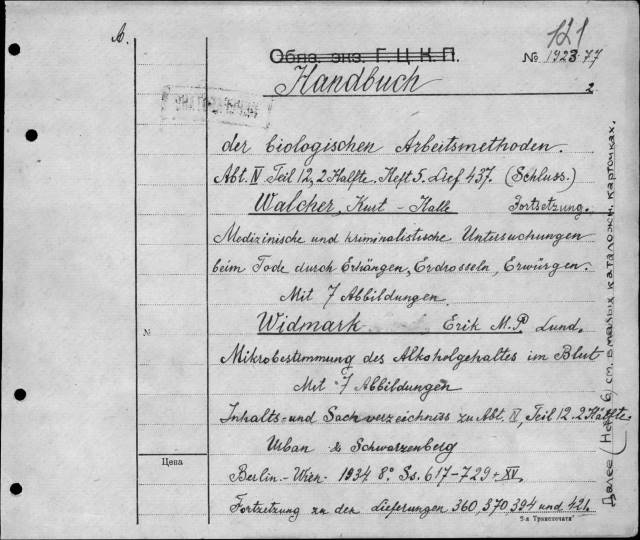 A.
121
Обяз. экз. Г.Ц.К.П.
№ 1923·77
Handbuch
2.
der biologischen Arbeitsmethoden.
Abt. IV Teil 12, 2 Hälfte. Heft 5. Lief 437. (Schluss.)
Walcher, Kurt - Halle Fortsetzung.
Medizinische und kriminalistische Untersuchungen
beim Tode durch Erhängen, Erdrosseln, Erwürgen.
Mit 7 Abbildungen.
№
Widmark Erik M.P. Lund.
Mikrobestimmung des Alkoholgehaltes im Blut
Mit 7 Abbildungen
Inhalts- und Sachverzeichniss zu Abt. IV, Teil 12. 2 Hälfte.
Urban & Schwarzenberg
Цена
Berlin.- Wien. 1934 8° Ss. 617-729 + XV.
Fortzetzung zu den Lieferungen 360, 370, 394 und 421.
5-я Транспечати
Далее (Heft 6, см. в малых каталожн. карточках.